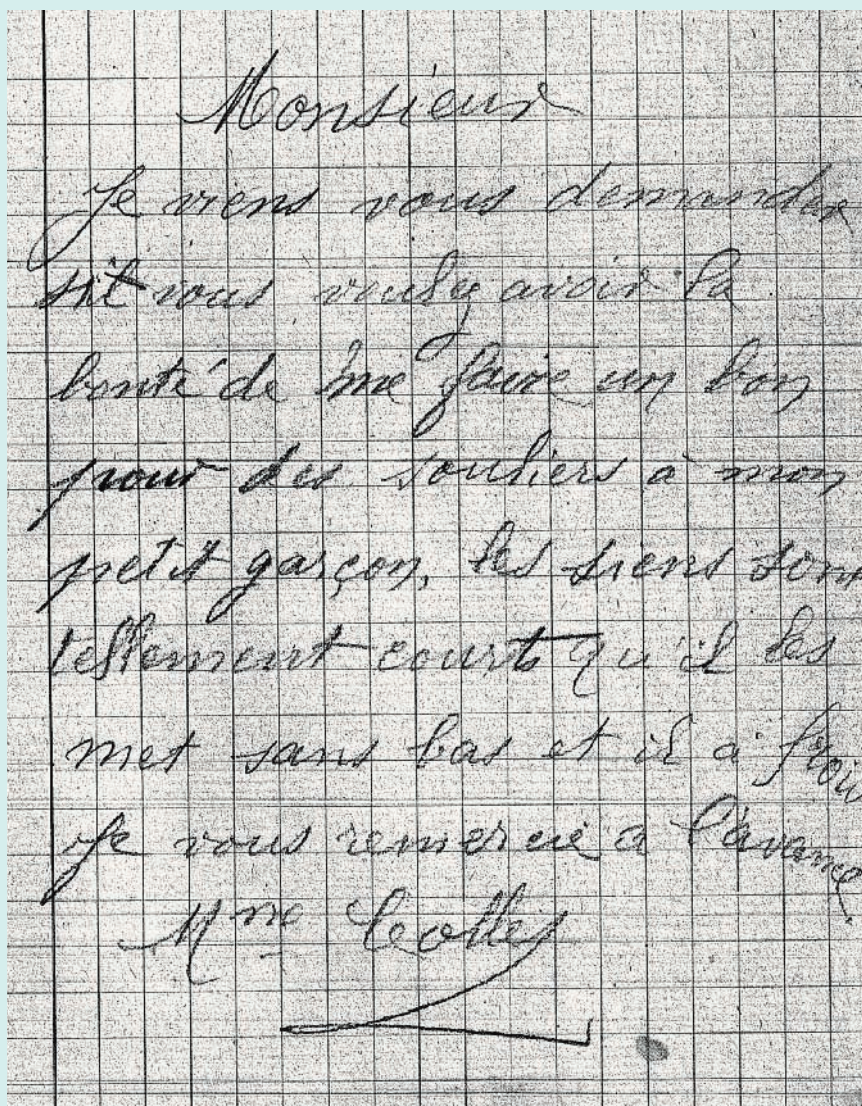 Monsieur
Je viens vous demander
sit vous voulez avoir la
bonté de me faire un bon
pour des souliers à mon
petit garçon, les siens sont
tellement courts qu'il les
met sans bas et il a froid
Je vous remercie a l'avance.
Mme